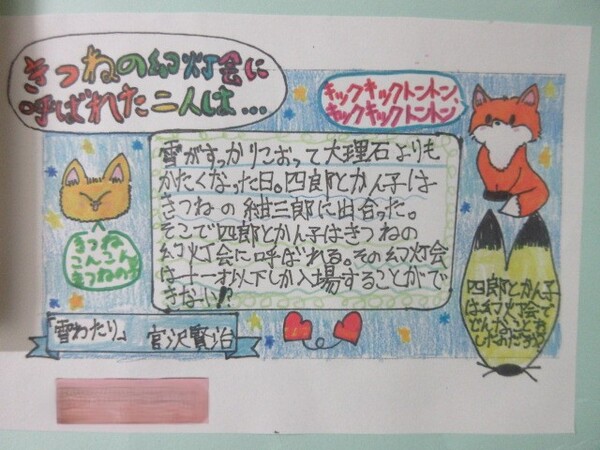 きつねの幻灯会に
呼ばれた二人は…
キックキックトントン、
キックキックトントン
雪がすっかりこおって大理石よりも
かたくなった日。四郎とかん子は
きつねの紺三郎に出会った。
そこで四郎とかん子はきつねの
幻灯会に呼ばれる。その幻灯会
は十一才以下しか入場することがで
きない!?
きつね
こんこん
きつねの子
四郎とかん子
は幻灯会で
「雪わたり」 宮沢賢治